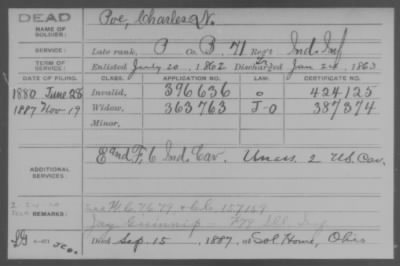 DEAD
NAME OF SOLDIER: Poe, Charles N.
SERVICE: Late rank, P Co. B, 71 Reg't Ind. Inf
TERM OF SERVICE: Enlisted July 20, 1862 Discharged Jan 24, 1863
DATE OF FILING. CLASS. APPLICATION NO. LAW. CERTIFICATE NO.
1880 June 28 Invalid, 396636 o 424125
1887 Nov 19 Widow, 363763 J-O 387374
Minor,
ADDITIONAL SERVICES: E and F, 6 Ind. Cav. Unass. 2 U.S. Cav.
REMARKS: See W.C. 7679
Jay
Died Sep. 15, 1887, at Sol Home, Ohio